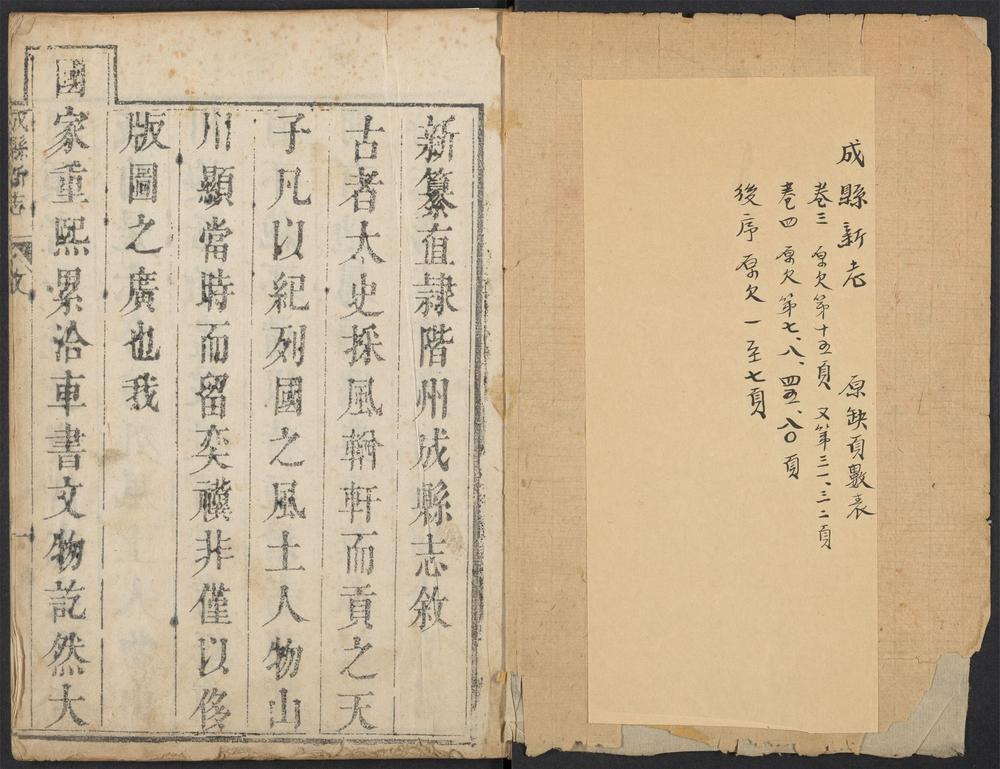 成縣新志 原缺頁數表
卷三 原欠第十五頁 又第三一、三二頁
卷四 原欠第七、八、四五、八〇頁
後序原欠一至七頁
新纂直隷階州成縣志敘
古者太史採風輶軒而貢之天
子凡以紀列國之風土人物山
川顯當時而留奕禩非僅以侈
版圖之廣也我
國家重熙累洽車書文物訖然大
成縣新志